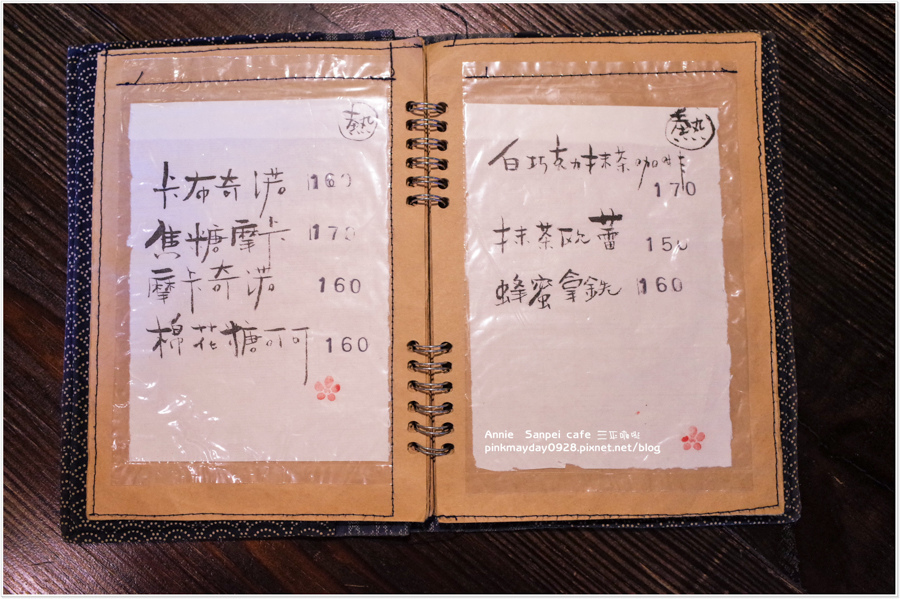 熱
卡布奇諾 160
焦糖摩卡 170
摩卡奇諾 160
棉花糖可可 160
熱
白巧克力抹茶咖啡
170
抹茶欧蕾 150
蜂蜜拿鉄 160
Annie Sanpei cafe 三瓜咖啡
pinkmayday0928.pixnet.net/blog